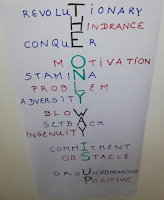 REVOLUTIONARY
HINDRANCE
CONQUER
MOTIVATION
STAMINA
PROBLEM
ADVERSITY
BLOW
SETBACK
INGENUITY
COMMITMENT
OBSTACLE
GROUNDBREAKING
POSITIVE